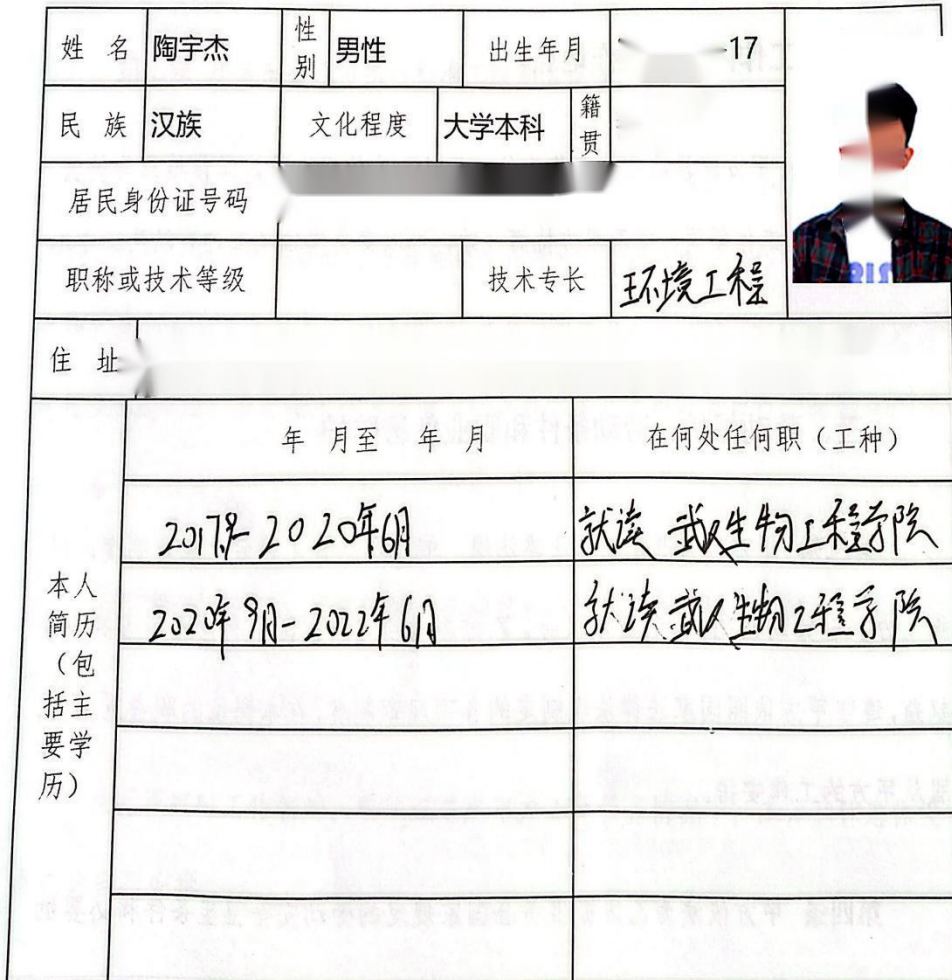 姓 名 陶宇杰 性别 男性 出生年月 -17
民 族 汉族 文化程度 大学本科 籍贯
居民身份证号码
职称或技术等级 技术专长 环境工程
住 址
年 月至 年 月 在何处任何职（工种）
2017.9-2020年6月 就读 武汉生物工程学院
2020年9月-2022年6月 就读 武汉生物工程学院
本人
简历
（包
括主
要学
历）